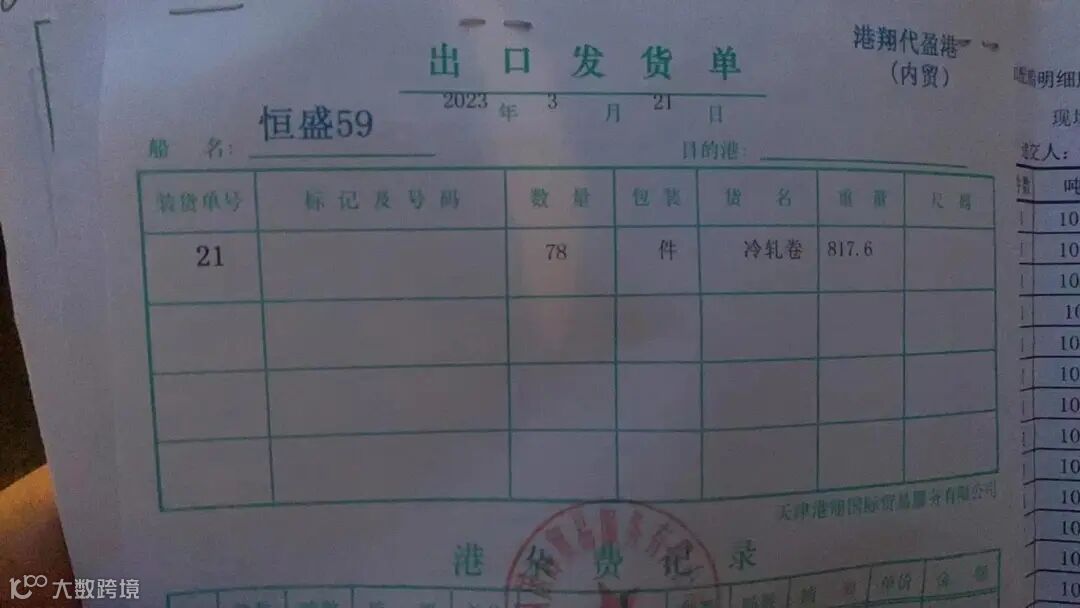 港翔代盈港
(内贸)
出口发货单
2023年3月21日
船名:恒盛59
目的港:
装货单号 标记及号码 数量 包装 货名 重量 尺码
21 78 件 冷轧卷 817.6
天津港翔国际贸易服务有限公司
港杂费记录
贸易服务有
单价 金额
明细
现场
交人:
件数 吨
10
10
10
10
10
10
10
10
10
10
10
10
10
大数跨境